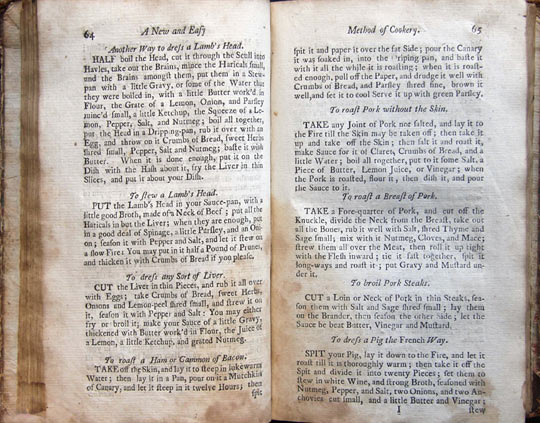 64 A New and Easy
Another Way to dress a Lamb's Head.
HALF boil the Head, cut it through the Scull into
Havles, take out the Brains, mince the Haricals small,
and the Brains amongst them, put them in a Stew-
pan with a little Gravy, or some of the Water that
they were boiled in, with a little Butter work'd in
Flour, the Grate of a Lemon, Onion, and Parsley
mine'd small, a little Ketchup, the Squeeze of a Le-
mon, Pepper, Salt, and Nutmeg; boil all together,
put the Head in a Dripping-pan, rub it over with an
Egg, and throw on it Crumbs of Bread, sweet Herbs
shred small, Pepper, Salt and Nutmeg; baste it with
Butter. When it is done enough, put it on the
Dish with the Hash about it, fry the Liver in thin
Slices, and put it about your Dish.
To stew a Lamb's Head.
PUT the Lamb's Head in your Sauce-pan, with a
little good Broth, made of a Neck of Beef; put all the
Haricals in but the Liver; when they are enough, put
in a good deal of Spinage, a little Parsley, and an Oni-
on; season it with Pepper and Salt; and let it stew on
a slow Fire: You may put in it half a Pound of Prunes,
and thicken it with Crumbs of Bread if you please.
To dress any Sort of Liver.
CUT the Liver in thin Pieces, and rub it all over
with Eggs; take Crumbs of Bread, sweet Herbs,
Onions and Lemon-peel shred small, and strew it on
it, season it with Pepper and Salt: You may either
fry or broil it; make your Sauce of a little Gravy,
thickened with Butter work'd in Flour, the Juice of
a Lemon, a little Ketchup, and grated Nutmeg.
To roast a Ham or Gammon of Bacon.
TAKE off the Skin, and lay it to steep in lukewarm
Water; then lay it in a Pan, pour on it a Mutchkin
of Canary, and let it steep in it twelve Hours; then
spit
Method of Cookery. 65
spit it and paper it over the fat Side; pour the Canary
it was soaked in, into the Dripping-pan, and baste it
with it all the while it is roasting; when it is roast-
ed enough, pull off the Paper, and drudge it well with
Crumbs of Bread, and Parsley shred fine, brown it
well, and set it to cool. Serve it up with green Parsley.
To roast Pork without the Skin.
TAKE any Joint of Pork not salted, and lay it to
the Fire till the Skin may be taken off; then take it
up and take off the Skin; then salt and roast it,
make Sauce for it of Claret, Crumbs of Bread, and a
little Water; boil all together, put to it some Salt, a
Piece of Butter, Lemon Juice, or Vinegar; when
the Pork is roasted, flour it, then dish it, and pour
the Sauce to it.
To roast a Breast of Pork.
TAKE a Fore-quarter of Pork, and cut off the
Knuckle, divide the Neck from the Breast, take out
all the Bones, rub it well with Salt, shred Thyme and
Sage small, mix with it Nutmeg, Cloves, and Mace;
strew them all over the Meat, then roll it up tight
with the Flesh inward; tie it fast together, spit it
long-ways and roast it; put Gravy and Mustard un-
der it.
To broil Pork Steaks.
CUT a Loin or Neck of Pork in thin Steaks, sea-
son them with Salt and Sage shred small; lay them
on the Brander, then season the other Side; let the
Sauce be beat Butter, Vinegar and Mustard.
To dress a Pig the French Way.
SPIT your Pig, lay it down to the Fire, and let it
roast till it is thoroughly warm; then take it off the
Spit and divide it into twenty Pieces; set them to
stew in white Wine, and strong Broth, seasoned with
Nutmeg, Pepper, and Salt, two Onions, and two An-
chovies cut small, and a little Butter and Vinegar;
I stew